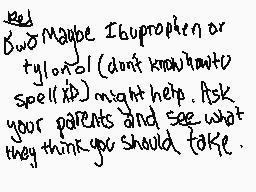 Yes!
OwO Maybe Ibuprophen or
tylonol (don't know how to
spell XD) might help. Ask
your parents and see what
they think you should take.